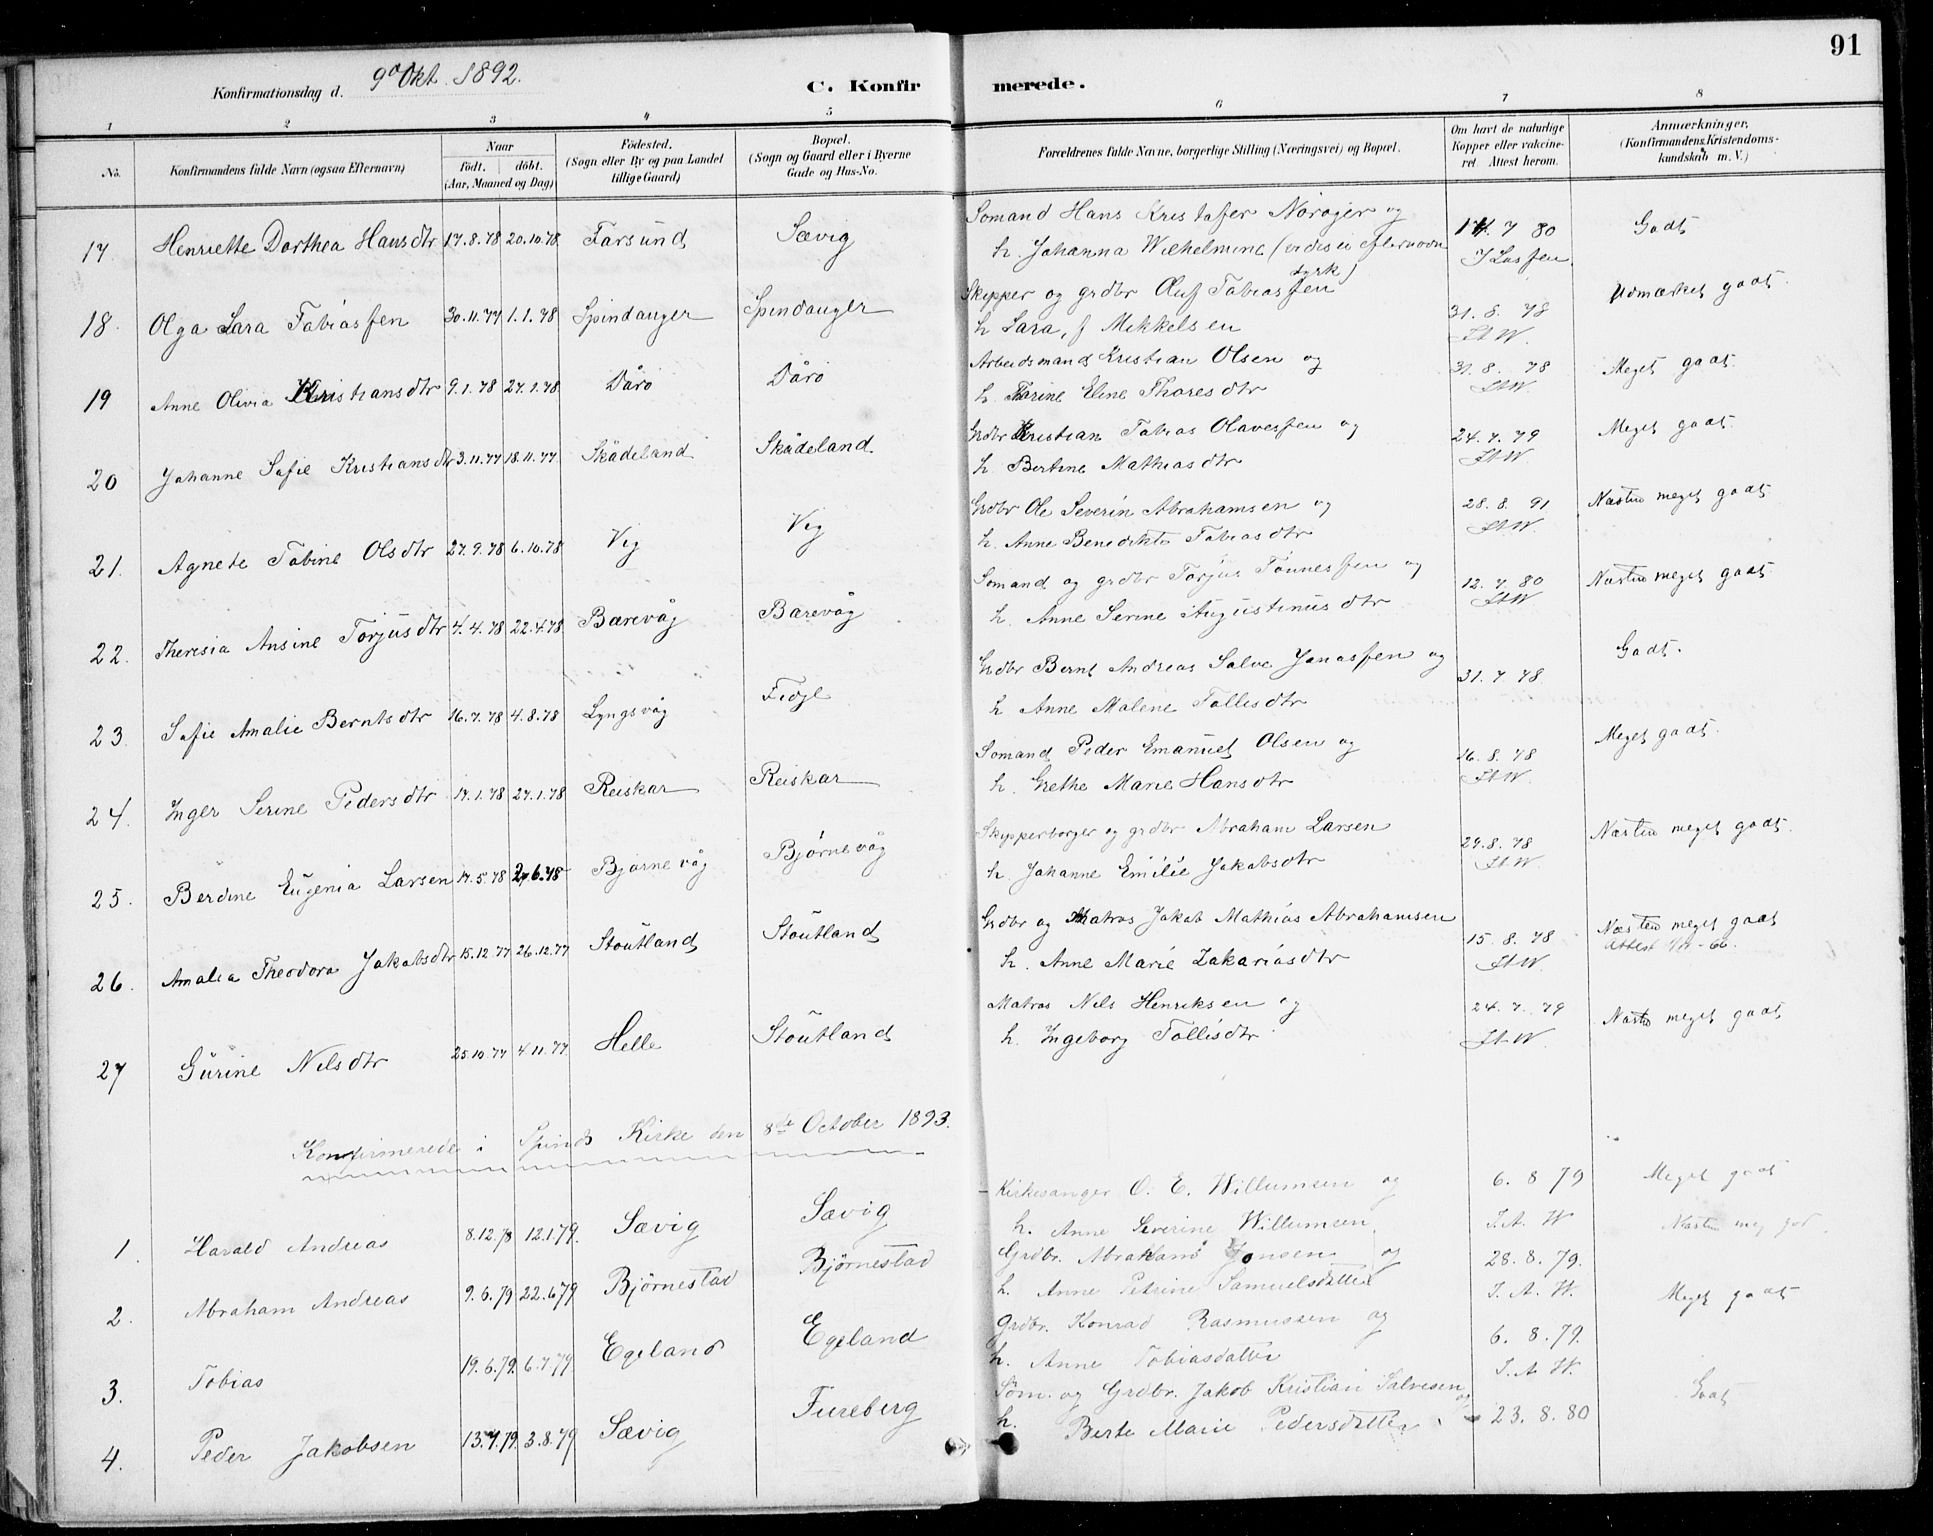 91
Konfirmationsdag d. 9de Okt. 1892.
C. Konfirmerede.
1 2 3 4 5 6 7 8
No. Konfirmandens fulde Navn (ogsaa Efternavn) Naar födt. döbt. (Aar, Maaned og Dag) Födested. (Sogn eller By og paa Landet tillige Gaard) Bopæl. (Sogn og Gaard eller i Byerne Gade og Hus-No. Forældrenes fulde Navne, borgerlige Stilling (Næringsvei) og Bopæl. Om havt de naturlige Kopper eller vakcineret. Attest herom. Anmærkninger. (Konfirmandens Kristendomskundskab m. V.)
17 Henriette Dorthea Hansdtr 17.8.78 20.10.78 Farsund Sævig Sömand Hans Kristofer og 14.7 80 Godt
h. Johanna Wilhelmine
18. Olga Sara Tobiassen 30.11.77 1.1.78 Spindanger Spindanger Skipper og grdbr Oluf Tobiassen 31.8.78 Udmærket godt.
h Sara, f Mikkelsen St.W.
19 Anne Olivia Kristiansdtr 9.1.78 27.1.78 Dårö Dårö Arbeidsmand Kristian Olsen og 31.8.78 Meget godt
h. Torine Eline Thoresdtr St.W.
20 Johanne Sofie Kristiansdtr 3.11.77 18.11.77 Skådeland Skådeland Grdbr Kristian Tobias Olavessen og 24.7.79 Meget godt
h. Bertine Mathiasdtr St.W.
21. Agnete Tobine Olsdtr 27.9.78 6.10.78 Vig Vig Grdbr Ole Severin Abrahamsen og 28.8.91 Næsten meget godt
h. Anne Benedikte Tobiasdtr St.W.
22. Theresia Ansine Torjusdtr 4.4.78 22.4.78 Bærevåg Bærevåg Sömand og grdbr Torjus Tönnessen og 12.7.80 Næsten meget godt
h. Anne Serine Augustinusdtr St.W.
23. Sofie Amalie Berntsdtr 16.7.78 4.8.78 Lyngsvåg Fidje Grdbr Bernt Andreas Salve Jonassen og 31.7.78 Godt.
h Anne Malene Tollisdtr
24. Inger Serine Pedersdtr 14.1.78 27.1.78 Reiskar Reiskar Sömand Peder Emanuel Olsen og 16.8.78 Meget godt.
h. Grethe Marie Hansdtr St.W.
25. Berdine Eugenia Larsen 14.5.78 2.6.78 Björnevåg Bjørnevåg Skipperborger og grdbr Abraham Larsen 29.8.78 Næsten meget godt.
h. Johanne Emilie Jakobsdtr St.W.
26. Amalia Theodora Jakobsdtr 15.12.77 26.12.77 Stoutland Stoutland Grdbr og Matros Jakob Mathias Abrahamsen 15.8.78 Næsten meget godt
h. Anne Marie Zakariasdtr St.W.
27 Gurine Nilsdtr 25.10.77 4.11.77 Helle Stoutland Matros Nils Henriksen og 24.7.79 Næsten meget godt
h. Ingeborg Tollisdtr St.W.
Konfirmerede i Spinds Kirke den 8de October 1893.
1. Harald Andreas 8.12.78 12.1.79. Sævig Sævig Kirkesanger O. E. Willumsen og 6.8 79 Meget godt
h. Anne Severine Willumsen. S.A.W
2. Abraham Andreas 9.6.79 22.6.79 Bjørnestad Bjørnestad Grdbr. Abraham Jonsen og 28.8.79. Næsten meg god.
h. Anne Petrine Samuelsdatter S.A.W.
3. Tobias 19.6.79. 6.7.79. Egeland Egeland Grdbr. Konrad Rasmussen og 6.8.79. Meget godt
h. Anne Tobiasdatter S.A.W.
4. Peder Jakobsen 13.7.79. 3.8.79 Sævig Fureberg Søm. og Grdbr. Jakob Kristian Salvesen og 23.8.80 Godt
h. Berte Marie Pedersdatter